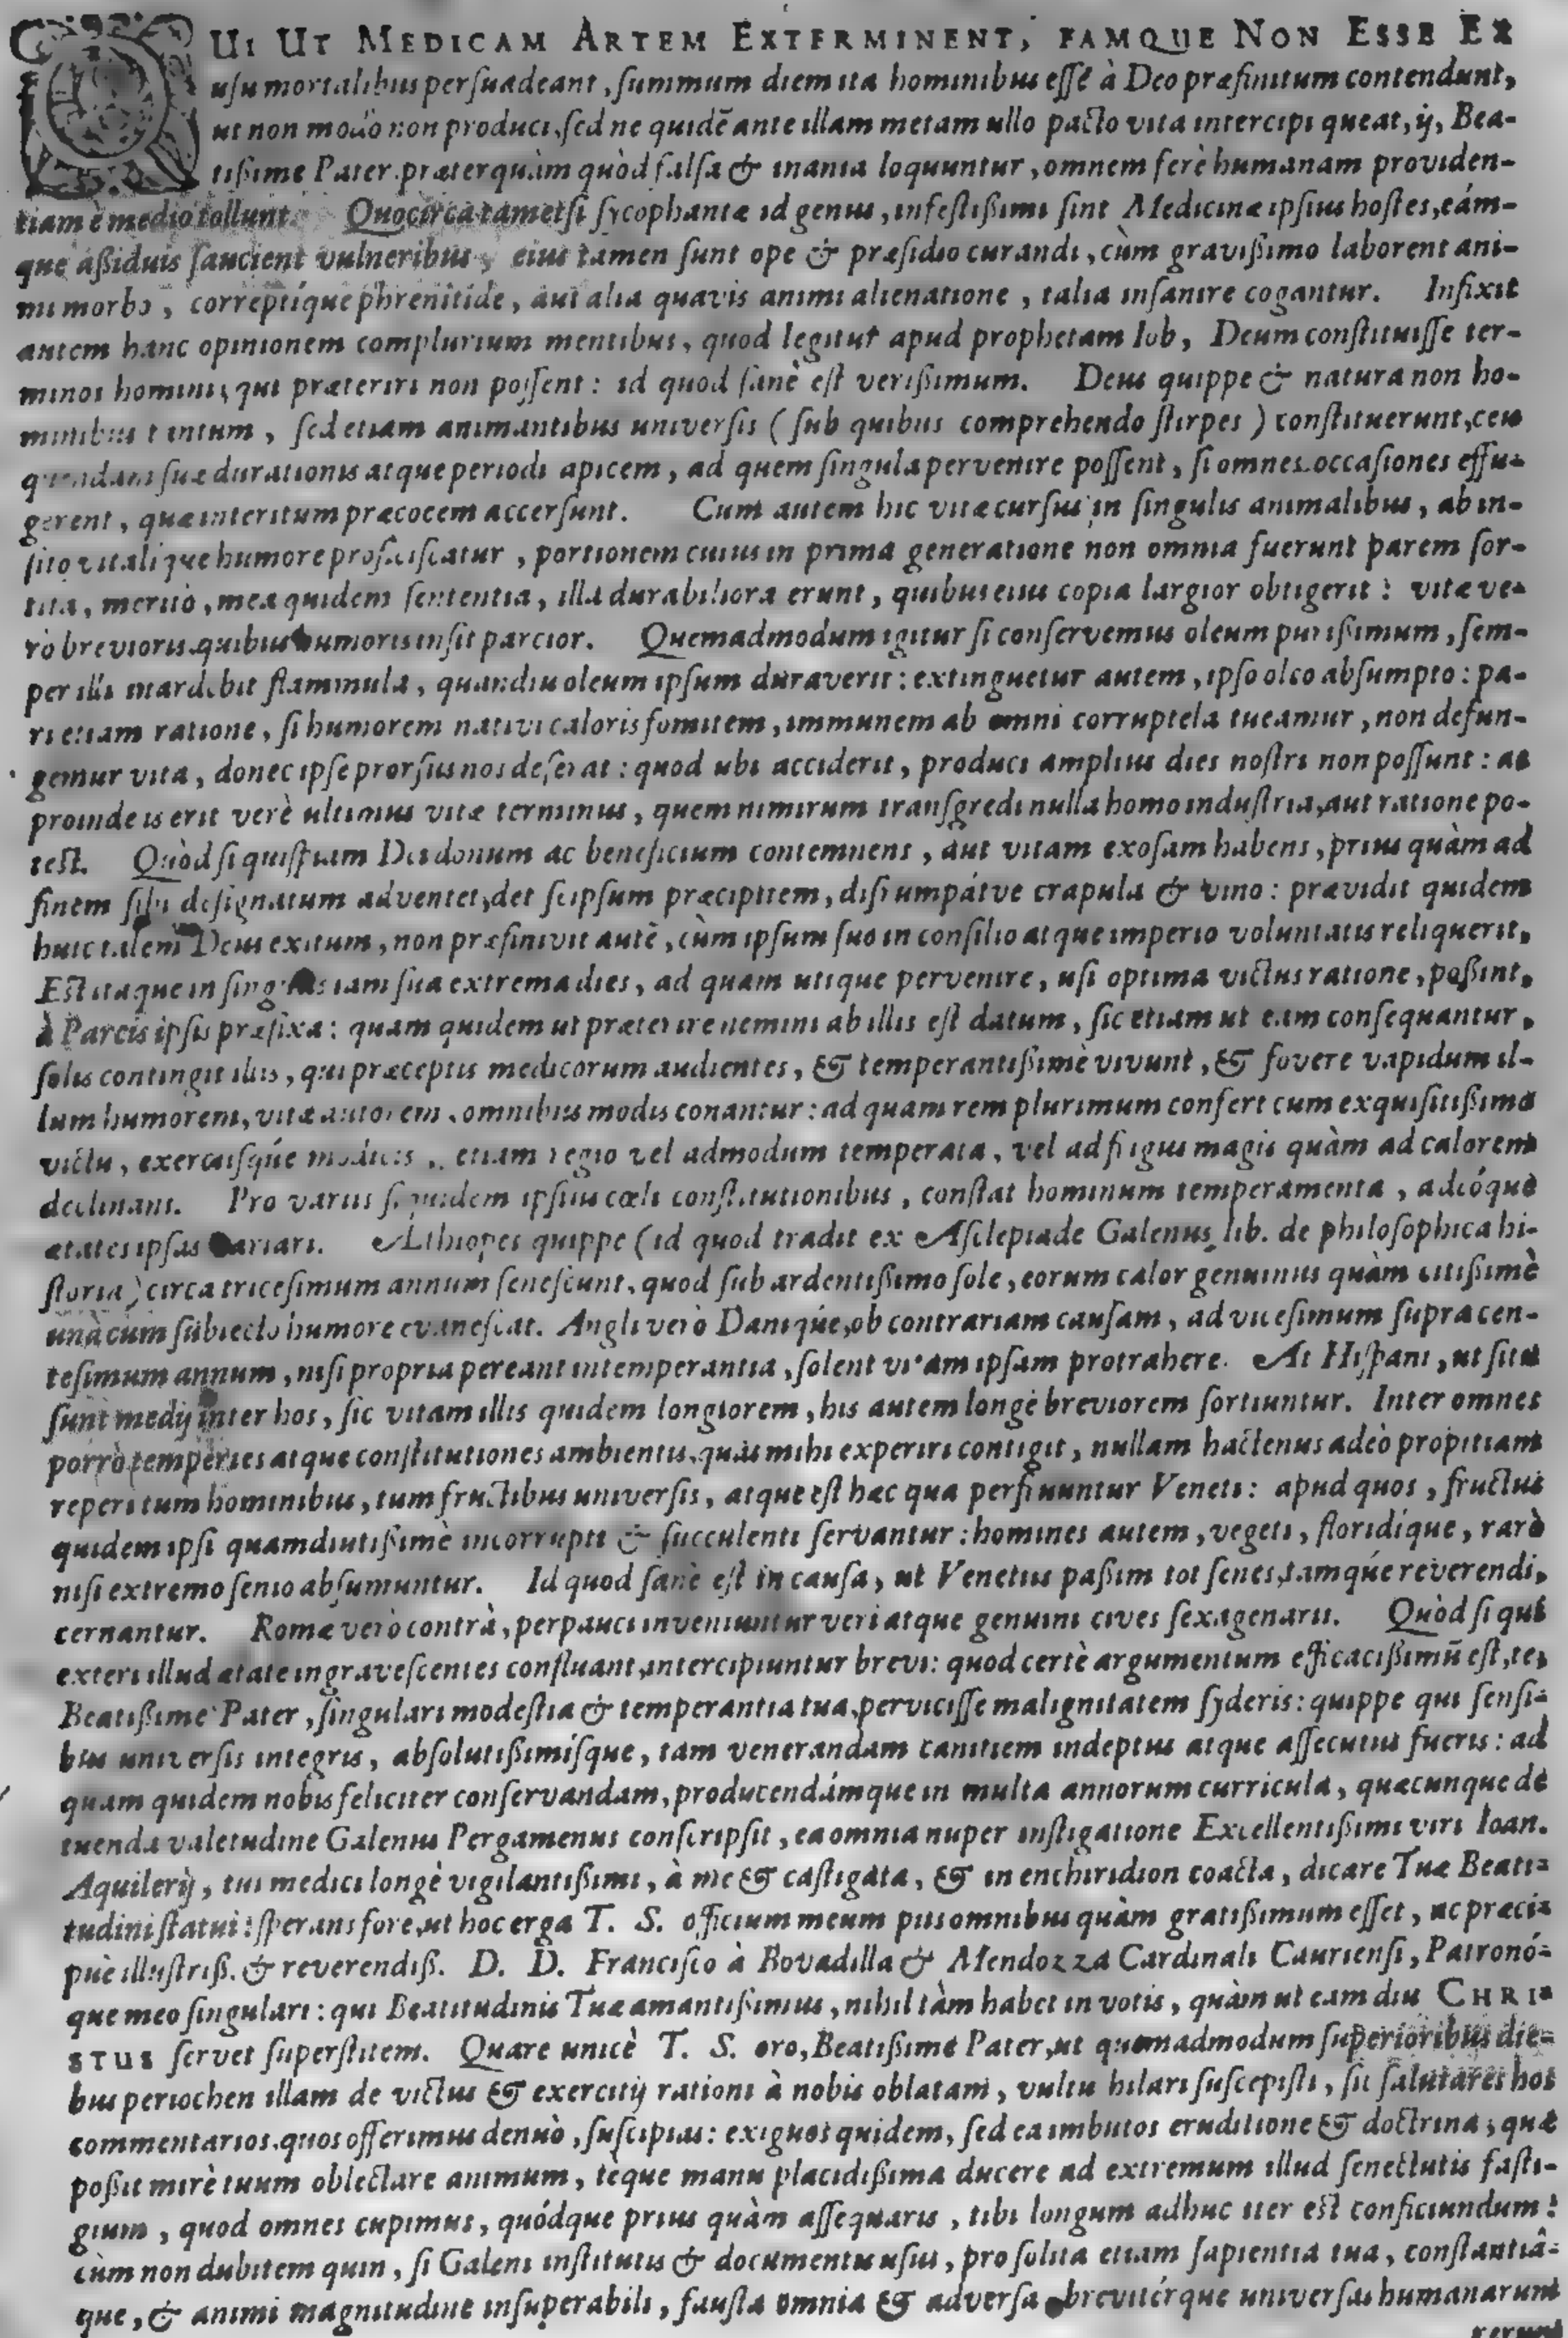 QUI UT MEDICAM ARTEM EXTERMINENT, EAMQUE NON ESSE EX
usu mortalibus persuadeant, summum diem ita hominibus esse à Deo præfinitum contendunt,
ut non modò non produci, sed ne quidē ante illam metam ullo pacto vita intercipi queat, ij, Bea-
tißime Pater, præterquàm quòd falsa & inania loquuntur, omnem ferè humanam providen-
tiam è medio tollunt. Quocirca tametsi sycophantæ id genus, infestißimi sint Medicinæ ipsius hostes, eám-
que aßiduis saucient vulneribus, eius tamen sunt ope & præsidio curandi, cùm gravißimo laborent ani-
mi morbo, correptíque phrenitide, aut alia quavis animi alienatione, talia insanire cogantur. Infixit
autem hanc opinionem complurium mentibus, quod legitur apud prophetam Iob, Deum constituisse ter-
minos hominis, qui præteriri non possent: id quod sanè est verißimum. Deus quippe & natura non ho-
minibus tantum, sed etiam animantibus universis (sub quibus comprehendo stirpes) constituerunt, ceu
quendam suæ durationis atque periodi apicem, ad quem singula pervenire possent, si omnes occasiones effu-
gerent, quæ interitum præcocem accersunt. Cum autem hic vitæ cursus in singulis animalibus, ab in-
sito vitalique humore proficiscatur, portionem cuius in prima generatione non omnia fuerunt parem sor-
tita, meritò, mea quidem sententia, illa durabiliora erunt, quibus eius copia largior obtigerit: vitæ ve-
rò brevioris, quibus humoris insit parcior. Quemadmodum igitur si conservemus oleum purißimum, sem-
per illi inardebit flammula, quandiu oleum ipsum duraverit: extinguetur autem, ipso oleo absumpto: pa-
ri etiam ratione, si humorem nativi caloris fomitem, immunem ab omni corruptela tueamur, non defun-
gemur vita, donec ipse prorsus nos deserat: quod ubi acciderit, produci amplius dies nostri non possunt: ac
proinde is erit verè ultimus vitæ terminus, quem nimirum transgredi nulla homo industria, aut ratione po-
test. Quòd si quispiam Dei donum ac beneficium contemnens, aut vitam exosam habens, prius quàm ad
finem sibi designatum adventet, det seipsum præcipitem, disrumpátve crapula & vino: prævidit quidem
huic talem Deus exitum, non præfinivit autē, cùm ipsum suo in consilio atque imperio voluntatis reliquerit.
Est itaque in singulis iam sua extrema dies, ad quam utique pervenire, usi optima victus ratione, poßint,
à Parcis ipsis præfixa: quam quidem ut præterire nemini ab illis est datum, sic etiam ut eam consequantur,
solis contingit illis, qui præceptis medicorum audientes, & temperantißimè vivunt, & fovere vapidum il-
lum humorem, vitæ autorem, omnibus modis conantur: ad quam rem plurimum confert cum exquisitißimo
victu, exercitiisque modicis, etiam regio vel admodum temperata, vel ad frigus magis quàm ad calorem
declinans. Pro variis siquidem ipsius cœli constitutionibus, constat hominum temperamenta, adeóque
ætates ipsas variari. Æthiopes quippe (id quod tradit ex Asclepiade Galenus, lib. de philosophica hi-
storia) circa tricesimum annum senescunt, quod sub ardentißimo sole, eorum calor genuinus quàm citißimè
unà cum subiecto humore evanescat. Angli verò Danique, ob contrariam causam, ad vicesimum supra cen-
tesimum annum, nisi propria pereant intemperantia, solent vitam ipsam protrahere. At Hispani, ut situ
sunt medij inter hos, sic vitam illis quidem longiorem, his autem longè breviorem sortiuntur. Inter omnes
porrò temperies atque constitutiones ambientis, quas mihi experiri contigit, nullam hactenus adeò propitiam
reperi tum hominibus, tum fructibus universis, atque est hæc qua perfruuntur Veneti: apud quos, fructus
quidem ipsi quamdiutißimè incorrupti & succulenti servantur: homines autem, vegeti, floridique, rarò
nisi extremo senio absumuntur. Id quod sanè est in causa, ut Venetiis paßim tot senes, tamque reverendi,
cernantur. Romæ verò contrà, perpauci inveniuntur veri atque genuini cives sexagenarii. Quòd si qui
exteri illud ætate ingravescentes confluant, intercipiuntur brevi: quod certè argumentum efficacißimū est, te,
Beatißime Pater, singulari modestia & temperantia tua, pervicisse malignitatem syderis: quippe qui sensi-
bus universis integris, absolutißimisque, tam venerandam canitiem indeptus atque assecutus fueris: ad
quam quidem nobis feliciter conservandam, producendámque in multa annorum curricula, quæcunque de
tuenda valetudine Galenus Pergamenus conscripsit, ea omnia nuper instigatione Excellentißimi viri Ioan.
Aquilerij, tui medici longè vigilantißimi, à me & castigata, & in enchiridion coacta, dicare Tuæ Beati-
tudini statui: sperans fore, ut hoc erga T. S. officium meum piis omnibus quàm gratißimum esset, ac præci-
puè illustriß. & reverendiß. D. D. Francisco à Bovadilla & Mendozza Cardinali Cauriensi, Patronó-
que meo singulari: qui Beatitudinis Tuæ amantißimus, nihil tàm habet in votis, quàm ut eam diu CHRI-
STUS servet superstitem. Quare unicè T. S. oro, Beatißime Pater, ut quemadmodum superioribus die-
bus periochen illam de victus & exercitij rationi à nobis oblatam, vultu hilari suscepisti, sic salutares hos
commentarios, quos offerimus denuò, suscipias: exiguos quidem, sed ea imbutos eruditione & doctrina, quæ
poßit mirè tuum oblectare animum, tèque manu placidißima ducere ad extremum illud senectutis fasti-
gium, quod omnes cupimus, quódque prius quàm assequaris, tibi longum adhuc iter est conficiundum:
cùm non dubitem quin, si Galeni institutis & documentis usus, pro solita etiam sapientia tua, constantiâ-
que, & animi magnitudine insuperabili, fausta omnia & adversa brevitérque universas humanarum
rerum